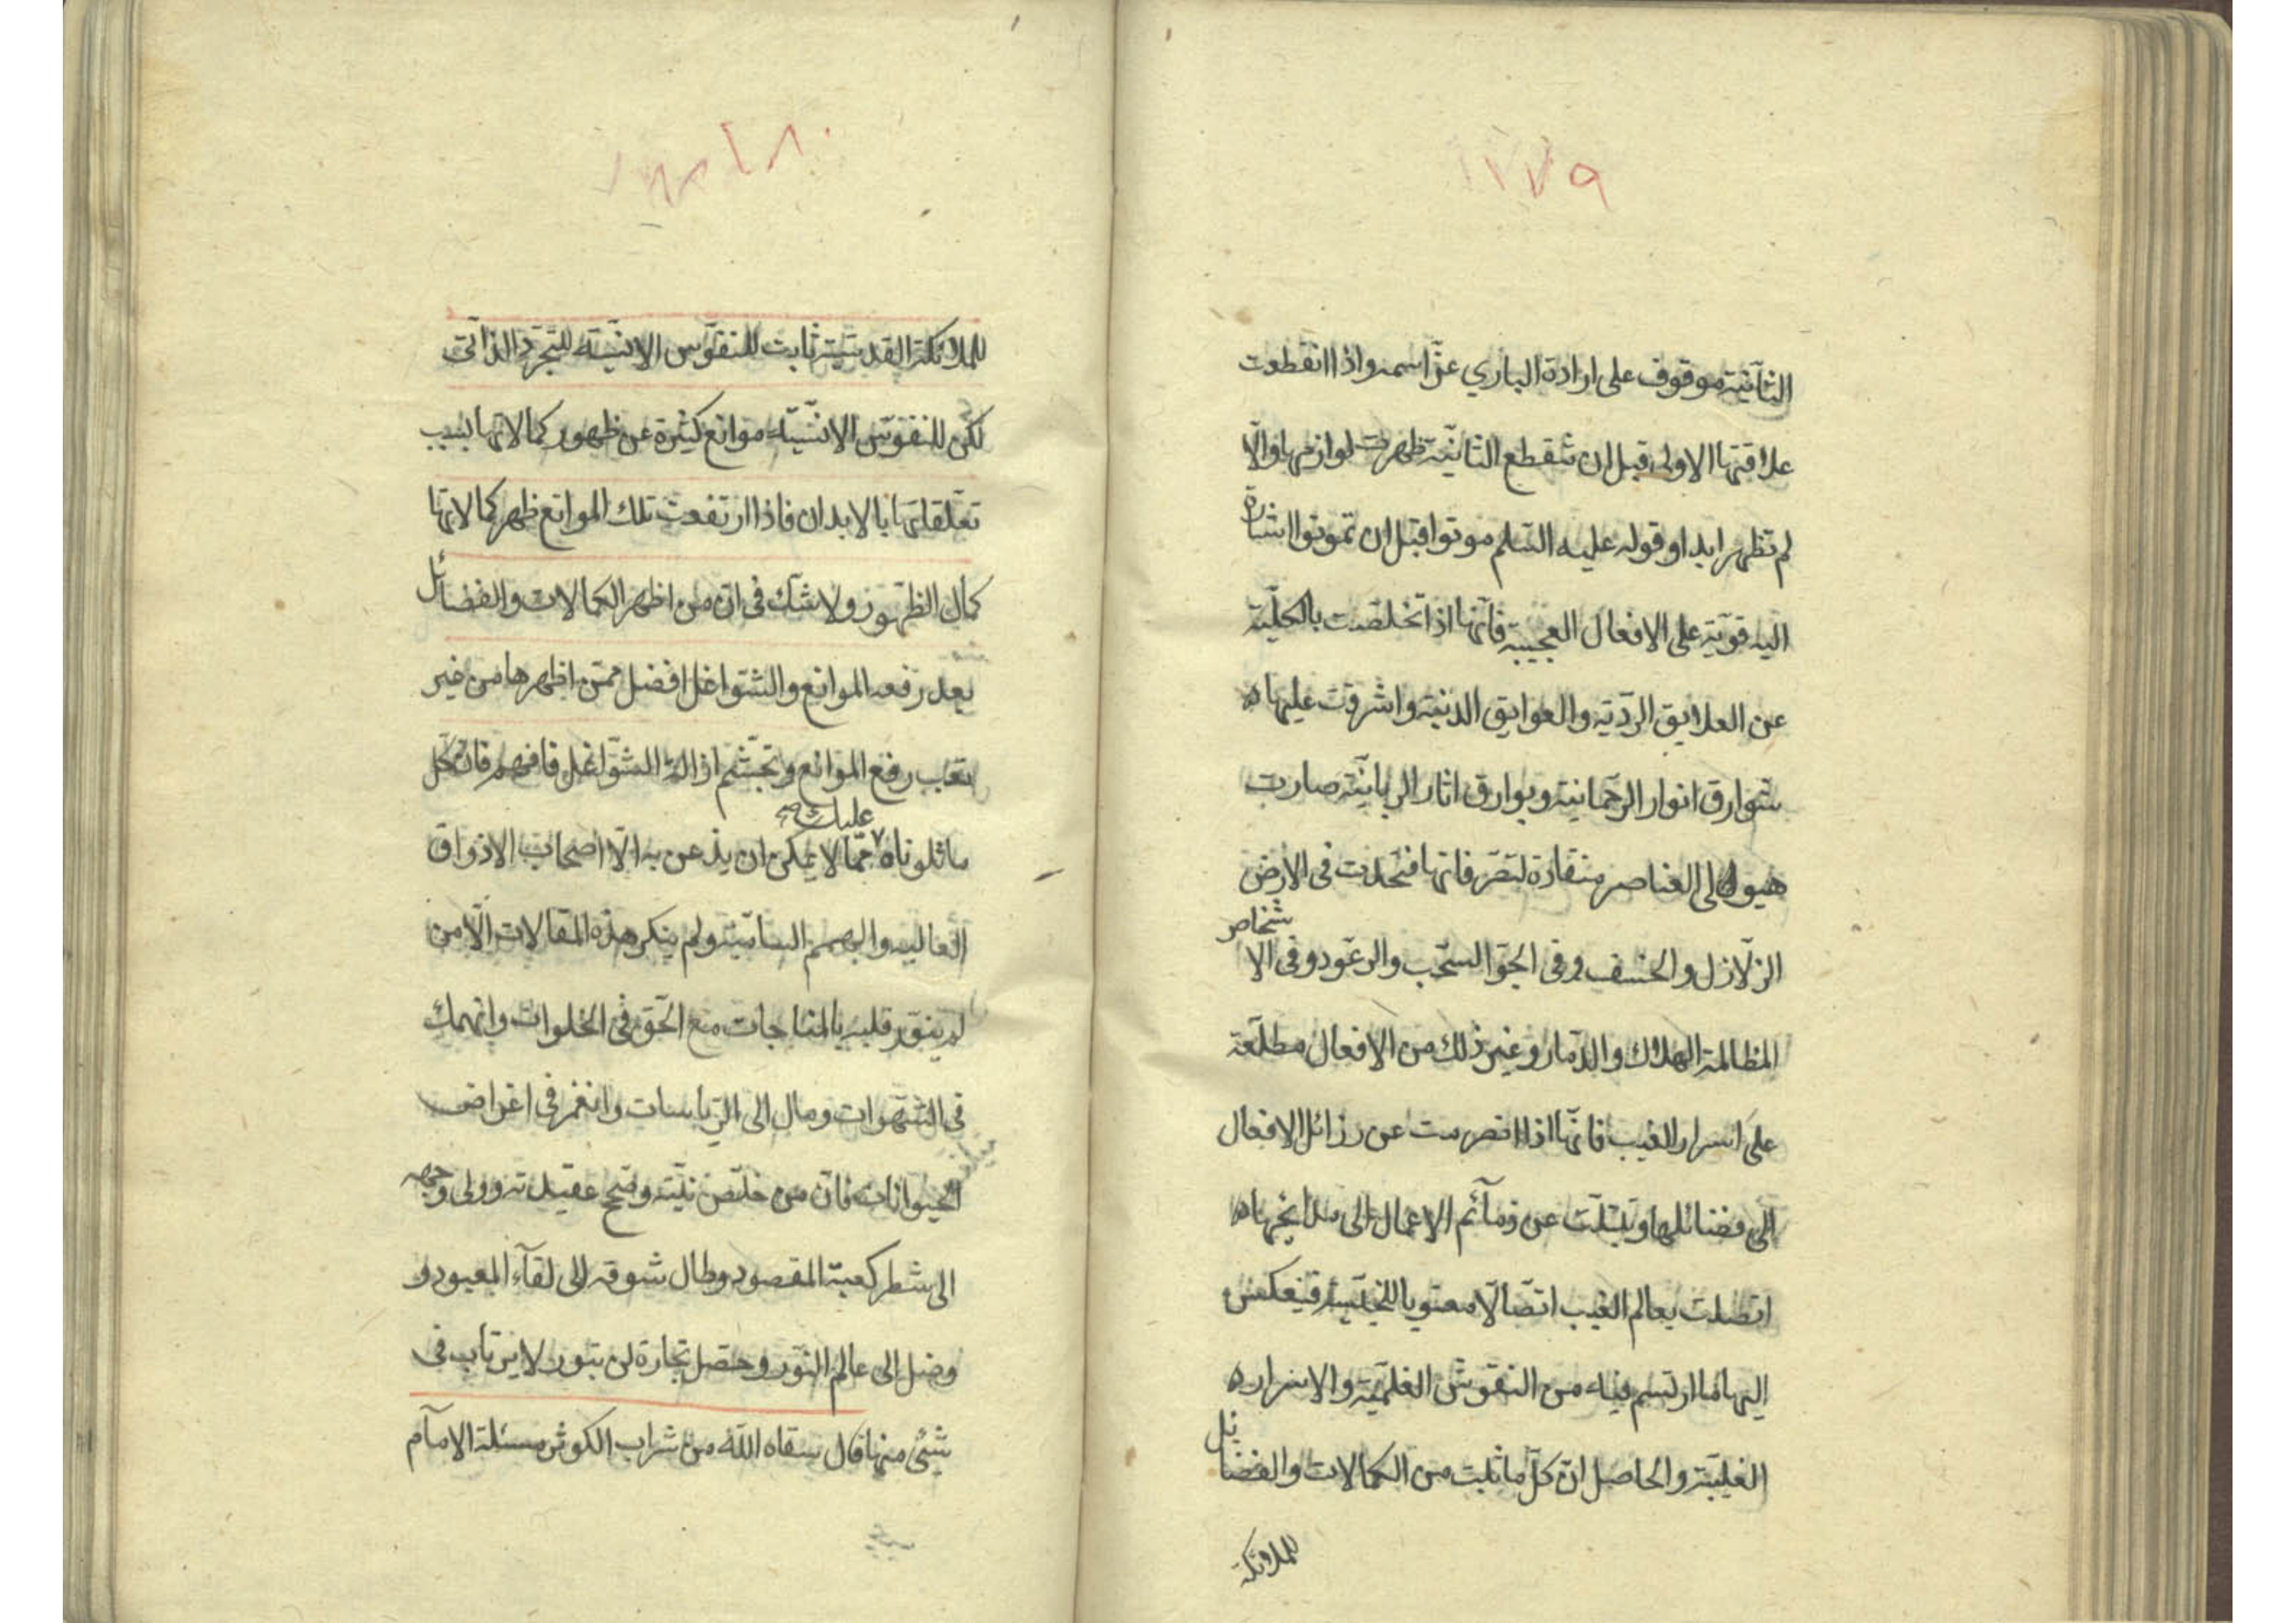 ١٧٧٩
الثانية موقوف على ارادة الباري عزّ اسمه واذا انقطعت
علاقتها الاولى قبل ان تنقطع الثانية ظهرت لوازمها والّا
لم تظهر ابدا وقوله عليه السّلم موتوا قبل ان تموتوا اشارة
اليه قويّة على الافعال العجيبة فانّها اذا تخلّصت بالكليّة
عن العلايق الرديّة والعوايق الدنيّة واشرقت عليها ه
شوارق انوار الرحمانية وبوارق اثار الربانيّة صارت
هيولى العناصر منقادة لتصرفاتها فتحدث فى الارض
الزلازل والخسف وفى الجوّ السّحب والرعود وفى الاشخاص
المظالمة الهلاك والدّمار وغير ذلك من الافعال مطلّعة
على اسرار الغيب فانّها اذا انصرمت عن رزائل الافعال
الى فضائلها وتبتّلت عن ذمآئم الاعمال الى مدايحها ه
اتصلت بعالم الغيب اتصّالا معنويا للجنسيّة فينعكس
اليها ما ارتسم فيه من النقوش العلميّة والاسرار ه
الغيبيّة والحاصل انّ كلّ ما ثبت من الكمالات والفضائل
للملائكة
١٨٠
للملائكة القدسيّة ثابت للنفوس الانسيّة للتجرّد الذاتى
لكن للنفوس الانسيّة موانع كثيرة عن ظهور كمالاتها بسبب
تعلقاتها بالابدان فاذا ارتفعت تلك الموانع ظهر كمالاتها
كمال الظهور ولا شكّ فى انّ من اظهر الكمالات والفضائل
بعد رفعه الموانع والشواغل افضل ممّن اظهرها من غير
تعب رفع الموانع وتجشّم ازالة الشّواغل فافهم فانّ كل
ما تلوناه عليك ممّا لا يمكن ان يذعن به الّا اصحاب الاذواق
العالية والهمم السّامية ولم ينكر هذه المقالات الّا من
لم ينوّر قلبه بالمناجات مع الحقّ فى الخلوات وانهمك
فى الشّهوات ومال الى الرّياسات وانغمر فى اغراض
الحيوانات فانّ من خلّص نيّته وصحّ عقيدته وولى وجهه
الى شطر كعبة المقصود وطال شوقه الى لقآء المعبود و
وصل الى عالم النّور وحصّل تجارة لن تبور لا يرتاب فى
شئ منها قال سقاه اللّه من شراب الكوثر مسئلة الامآم